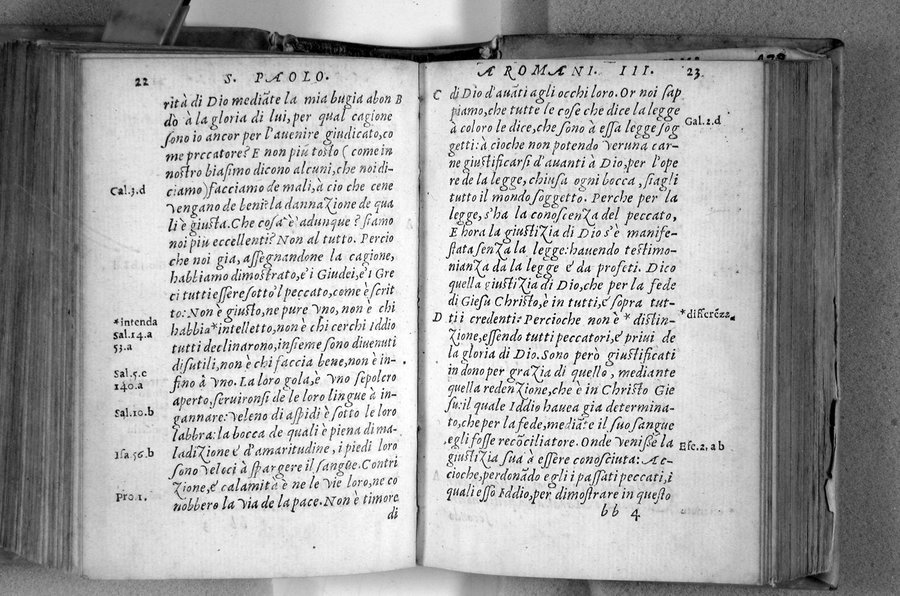 22 S. PAOLO.
rità di Dio mediãte la mia bugia abon B
dò à la gloria di lui, per qual cagione
sono io ancor per l'auenire giudicato, co
me peccatore? E non più tosto (come in
nostro biasimo dicono alcuni, che noi di-
Cal.3.d
ciamo) facciamo de mali, à cio che cene
vengano de beni? la dannazione de qua
li è giusta. Che cosa è adunque? siamo
noi più eccellenti? Non al tutto. Percio
che noi gia, assegnandone la cagione,
habbiamo dimostrato, e i Giudei, e i Gre
ci tutti essere sotto'l peccato, come è scrit
to: Non è giusto, ne pure vno, non è chi
*intenda
habbia *intelletto, non è chi cerchi Iddio
Sal.14.a
tutti declinarono, insieme sono diuenuti
53.a
disutili, non è chi faccia bene, non è in-
Sal.5.c
fino à vno. La loro gola, è vno sepolcro
140.a
aperto, seruironsi de le loro lingue à in-
Sal.10.b
gannare: veleno di aspidi è sotto le loro
labbra: la bocca de quali è piena di ma-
Isa.56.b
ladizione e d'amaritudine, i piedi loro
sono veloci à spargere il sangue. Contri
zione, e calamità è ne le vie loro, ne co
Pro.1.
nobbero la via de la pace. Non è timore
di
A ROMANI. III. 23
C di Dio d'auãti agli occhi loro. Or noi sap
piamo, che tutte le cose che dice la legge
Gal.2.d
à coloro le dice, che sono à essa legge sog
getti: à cioche non potendo veruna car-
ne giustificarsi d'auanti à Dio, per l'ope
re de la legge, chiusa ogni bocca, sia gli
tutto il mondo soggetto. Perche per la
legge, s'ha la conoscenza del peccato,
E hora la giustizia di Dio s'è manife-
stata senza la legge: hauendo testimo-
nianza da la legge e da profeti. Dico
quella giustizia di Dio, che per la fede
di Giesu Christo, è in tutti, e sopra tut-
D ti i credenti: Percioche non è * distin-
*differẽza
zione, essendo tutti peccatori, e priui de
la gloria di Dio. Sono però giustificati
in dono per grazia di quello, mediante
quella redenzione, che è in Christo Gie
su: il quale Iddio hauea gia determina-
to, che per la fede, mediãte il suo sangue
egli fosse recõciliatore. Onde venisse la
Efe.2.ab
giustizia sua à essere conosciuta: Ac-
cioche, perdonãdo egli i passati peccati, i
quali esso Iddio, per dimostrare in questo
bb 4